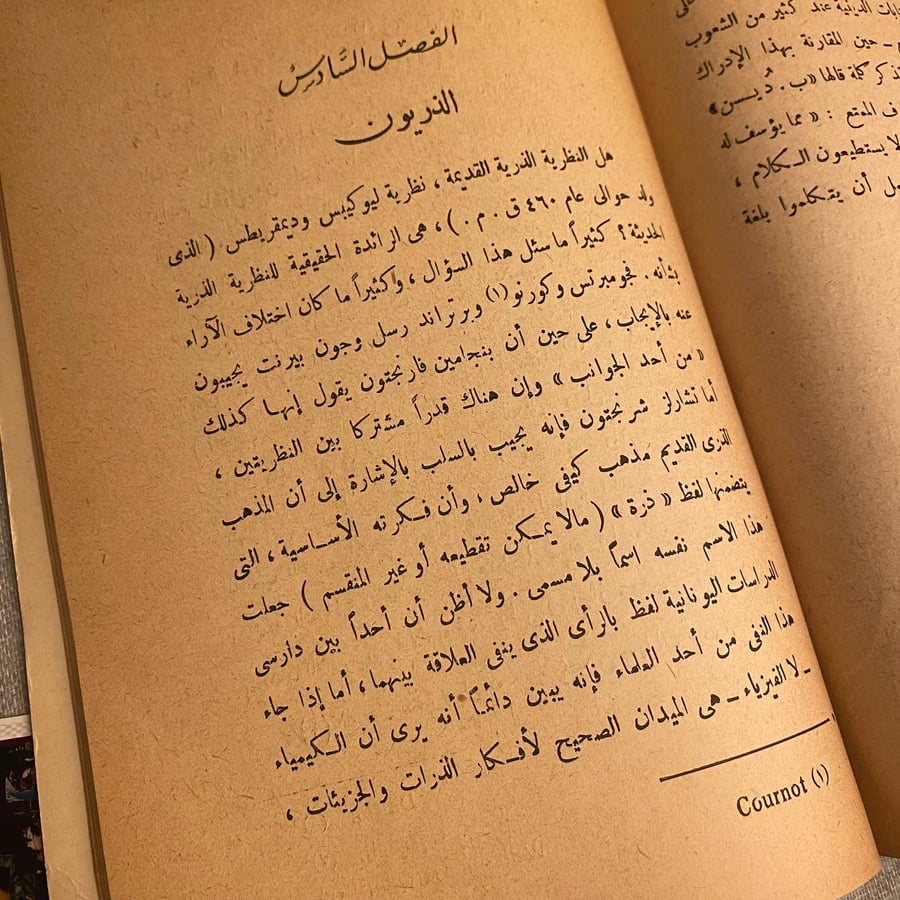 الفصل السَّادس
الذريون
هل النظرية الذرية القديمة ، نظرية ليوكيبس وديمقريطس ( الذى
ولد حوالى عام ٤٦٠ ق . م . ) ، هى الرائدة الحقيقية للنظرية الذرية
الحديثة ؟ كثيراً ما سئل هذا السؤال ، وكثيراً ما كان اختلاف الآراء
بشأنه . فجومبرتس وكورنو(١) وبرتراند رسل وجون بيرنت يجيبون
عنه بالإيجاب ، على حين أن بنجامين فارنجتون يقول إنها كذلك
« من أحد الجوانب » وإن هناك قدراً مشتركا بين النظريتين ،
أما تشارلز شرنجتون فإنه يجيب بالسلب بالإشارة إلى أن المذهب
الذرى القديم مذهب كيفى خالص ، وأن فكرته الأساسية ، التى
يتضمنها لفظ « ذرة » ( مالا يمكن تقطيعه أو غير المنقسم ) جعلت
هذا الاسم نفسه اسماً بلا مسمى . ولا أظن أن أحداً بين دارسى
الدراسات اليونانية لفظ بالرأى الذى ينفى العلاقة بينهما ، أما إذا جاء
هذا النفى من أحد العلماء فإنه يبين دائماً أنه يرى أن الكيمياء
ـ لا الفيزياء ـ هى الميدان الصحيح لأفكار الذرات والجزيئات ،
(١) Cournot
ابات الدينية عند كثير من الشعوب
ـ حين المقارنة بهذا الإدراك
تذكر كلمة قالها «ب . دُيسن»
ف الممتع : « مما يؤسف له
لا يستطيعون الكلام ،
أن يتكلموا بلغة